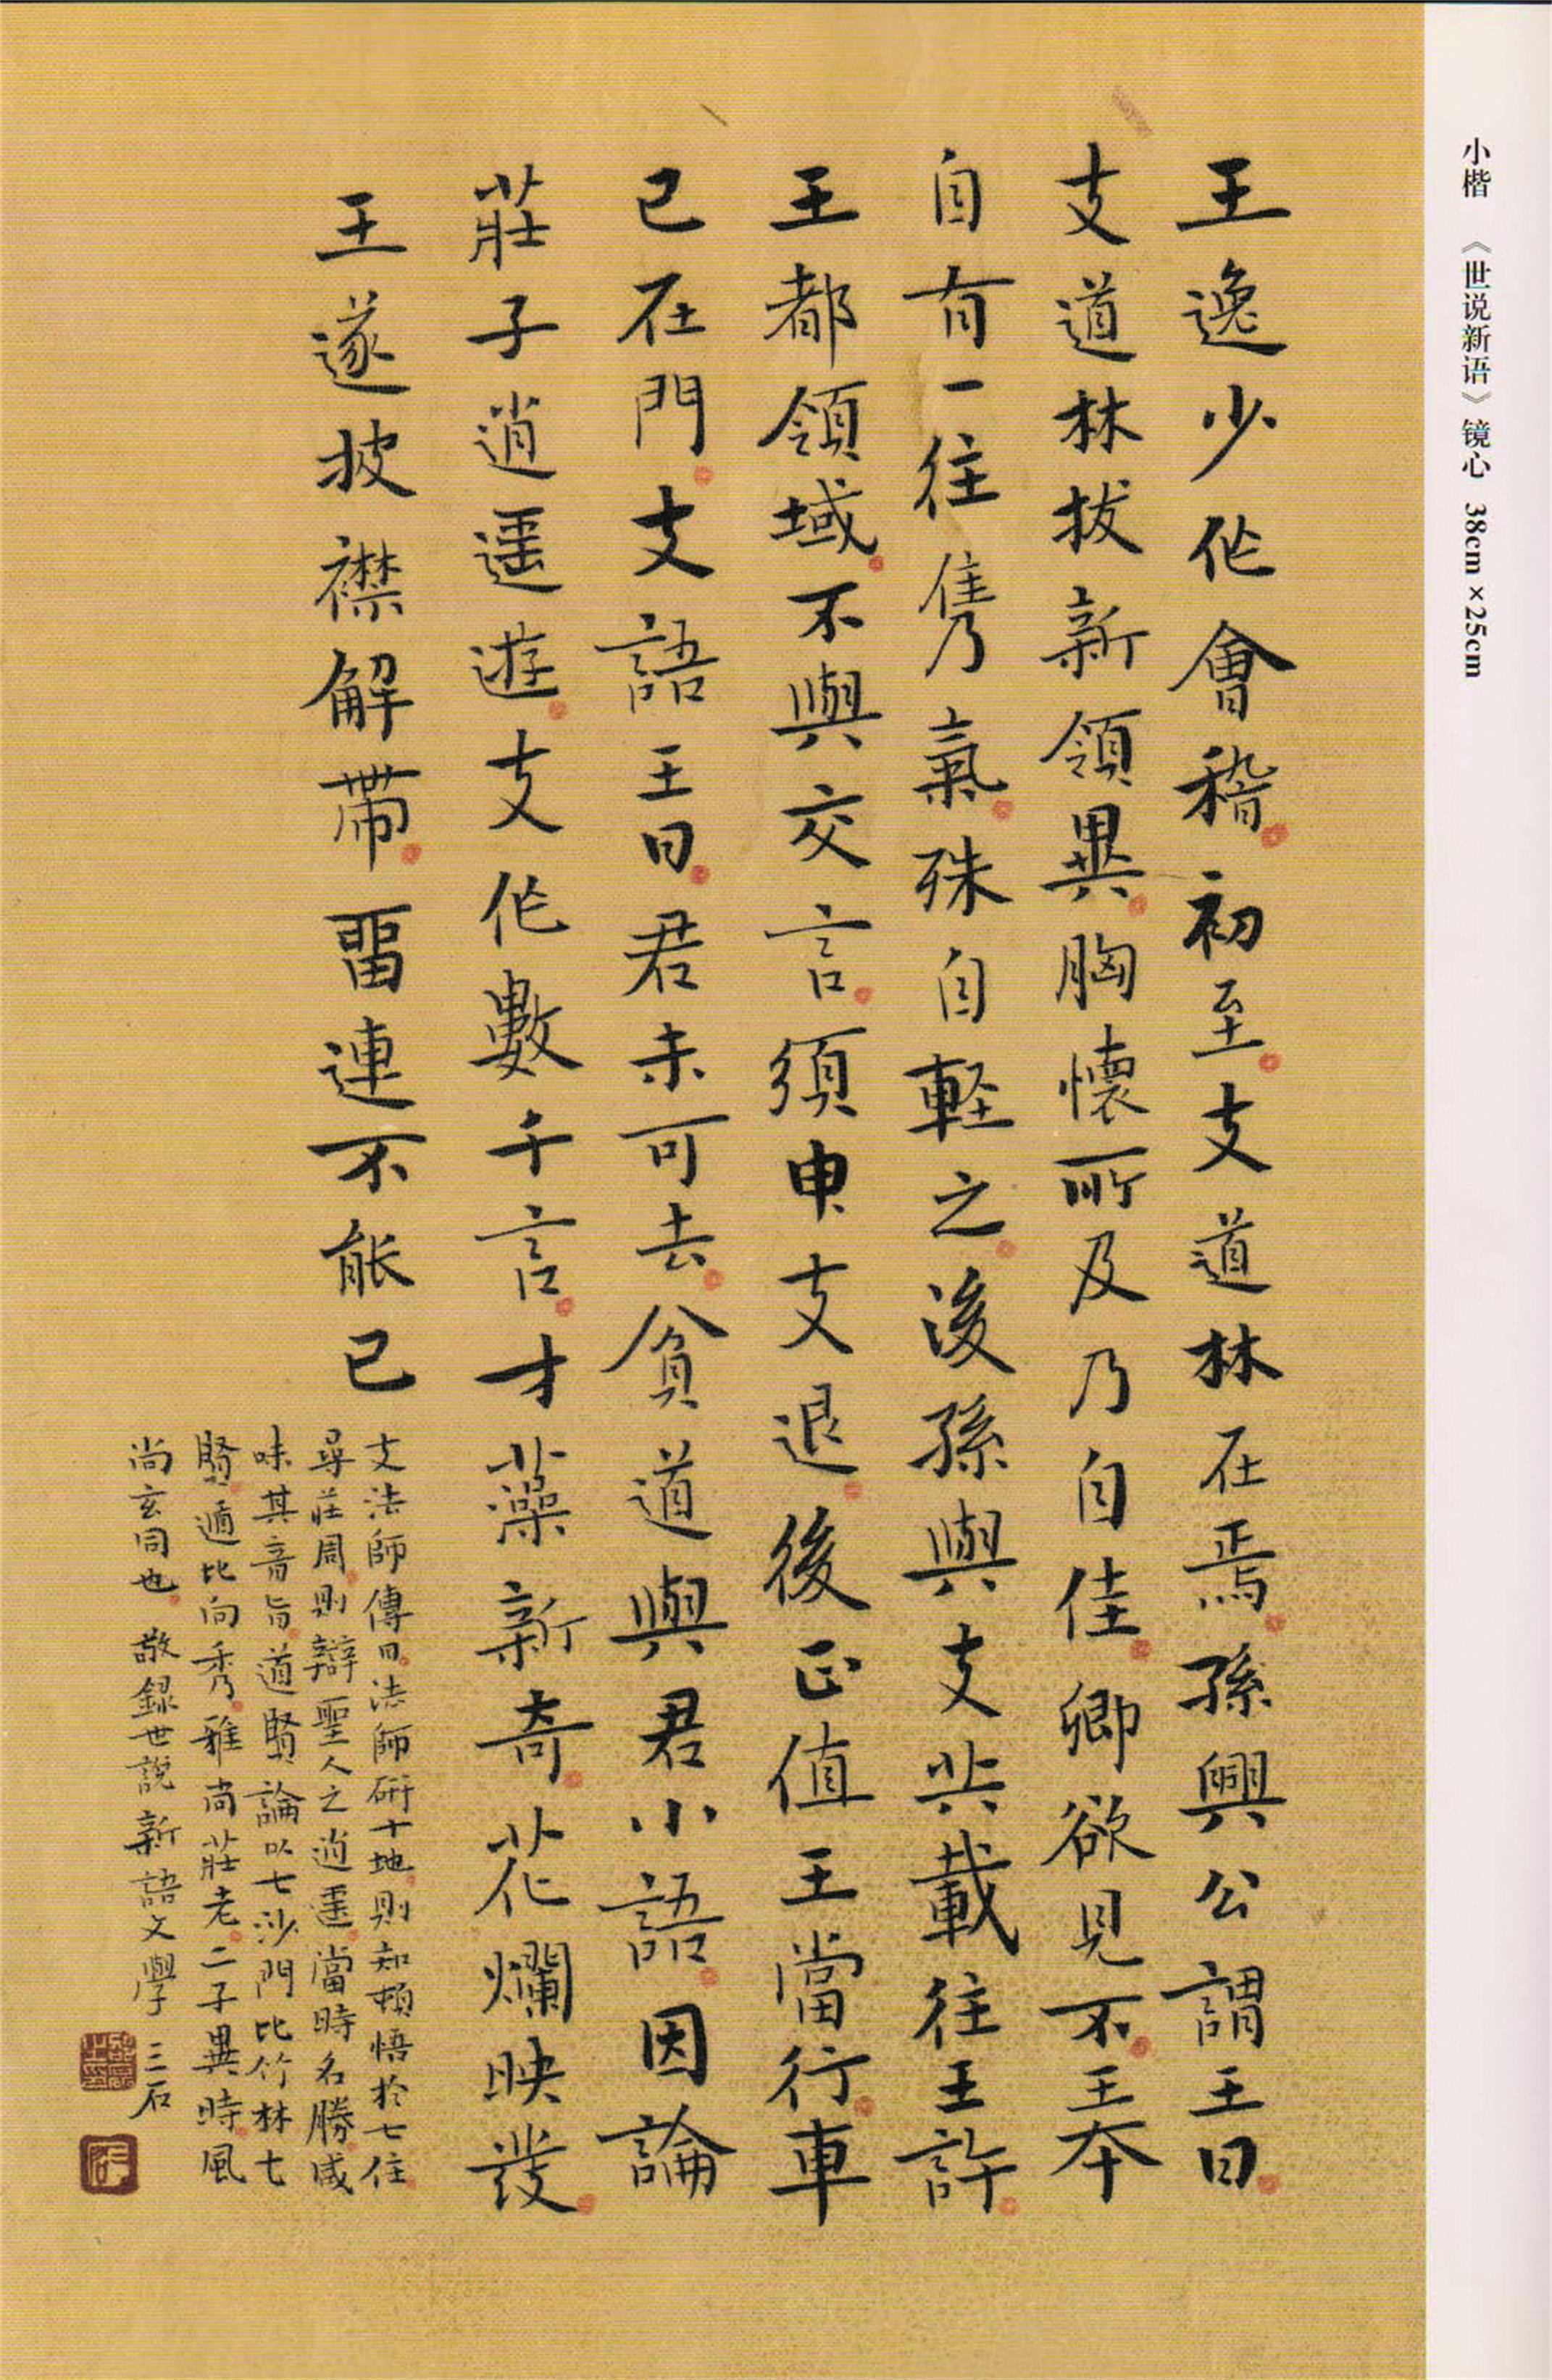 小楷 《世说新语》镜心 38cm×25cm
王逸少作會稽初至支道林在焉孫興公謂王曰
支道林拔新領異胸懷所及乃自佳卿欲見不王本
自有一往雋氣殊自軽之後孫與支共載往王許
王都領域不與交言須申支退後正值王當行車
已在門支語王曰君未可去貧道與君小語因論
莊子逍遥遊支作數千言才藻新奇花爛映發
王遂披襟解帶畱連不能已
支法師傳曰法師研十地則知頓悟於七住
尋莊周則辯聖人之逍遥當時名勝咸
味其音旨道賢論以七沙門比竹林七
賢遁比向秀雅尚莊老二子異時風
尚玄同也敬録世說新語文學 三石